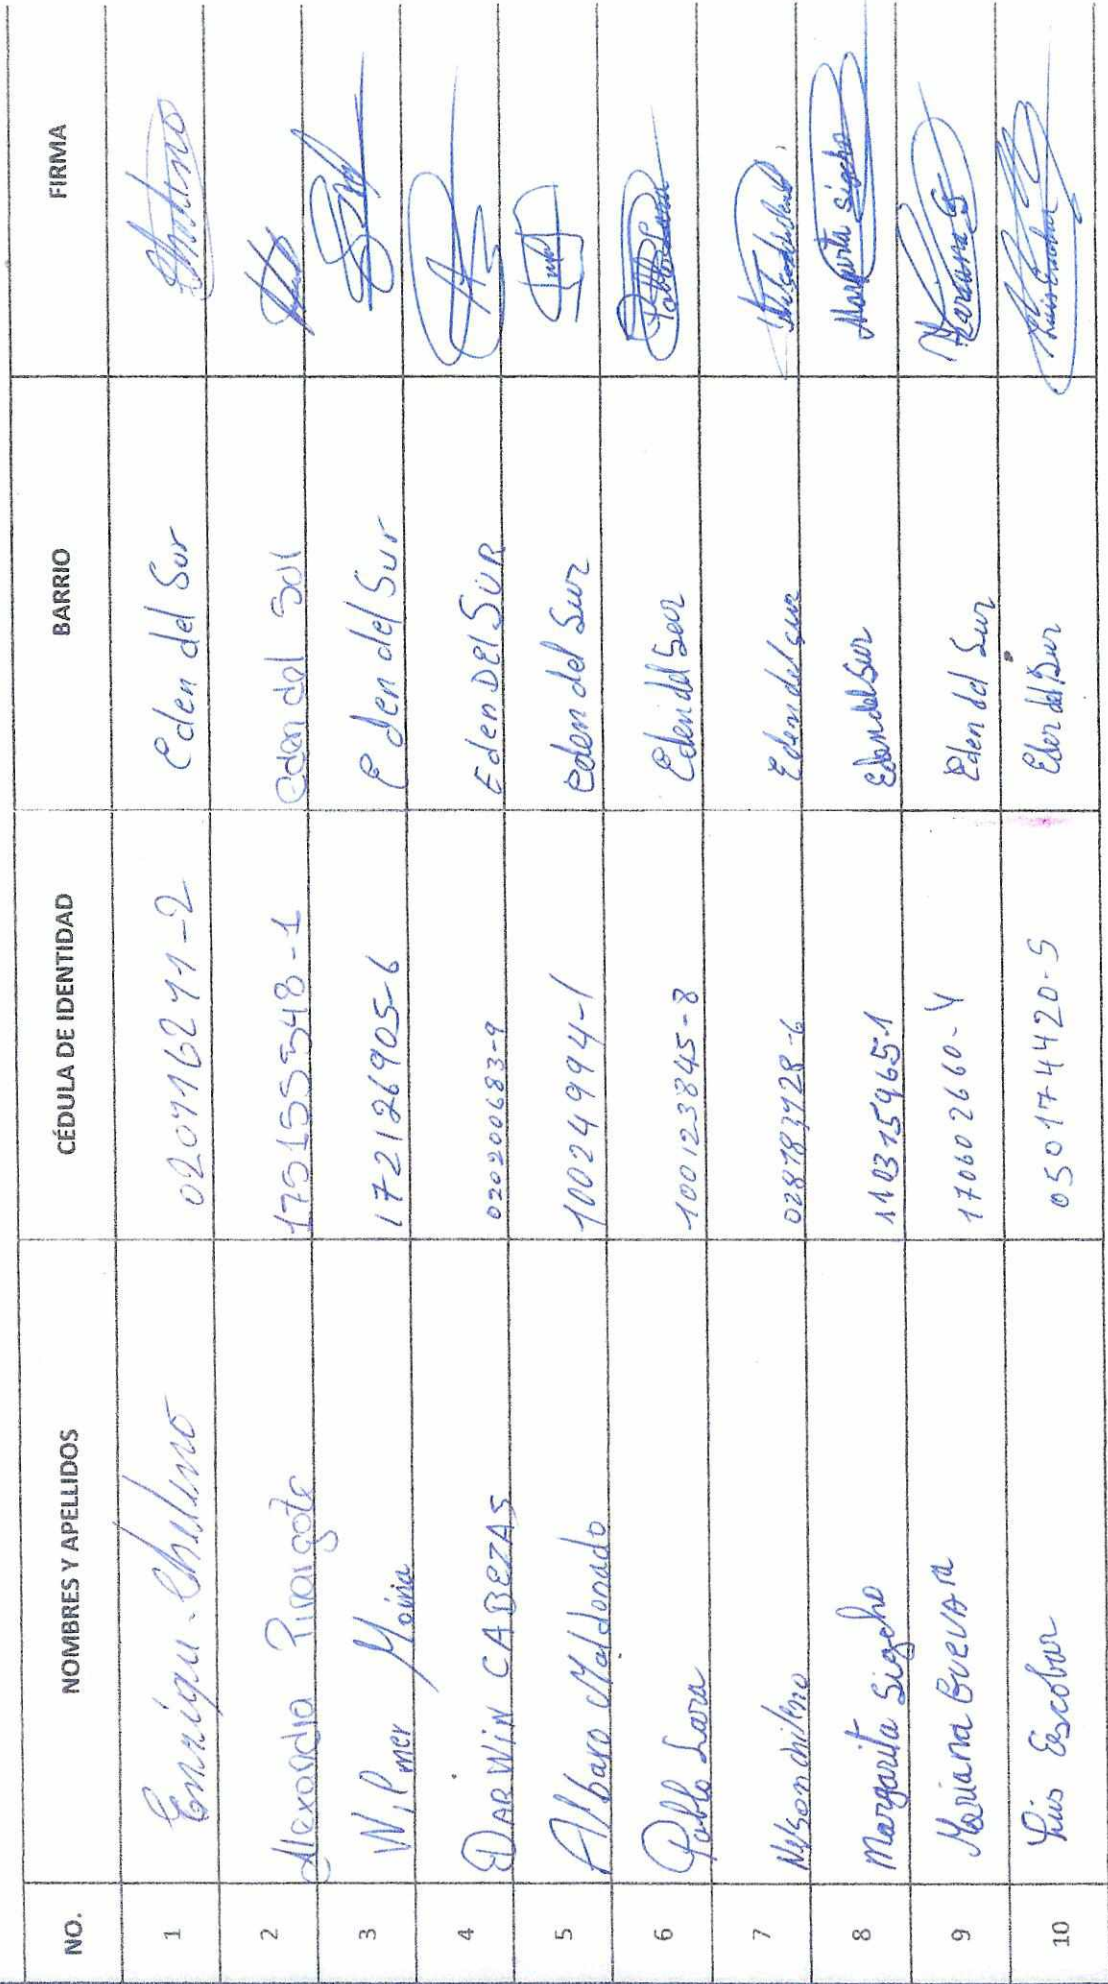 NO. NOMBRES Y APELLIDOS CÉDULA DE IDENTIDAD BARRIO FIRMA
1 Enrique Chileno 020116241-2 Eden del Sur
2 Alexandra 175155548-1 Eden del Sol
3 Wilmer 172126905-6 Eden del Sur
4 DARWIN CABEZAS 020200683-9 Eden DEl SUR
5 Albaro Maldonado 100249941-1 Eden del Sur
6 Pablo Lara 100123845-8 Eden del Sur Pablo Lara
7 Nelson chileno Eden del sur
8 Margarita Sigcho 110315965-1 Eden del Sur Margarita Sigcho
9 Mariana GUEVARA 170602660-4 Eden del Sur Mariana G
10 Luis Escobar 050174420-5 Eden del Sur Luis Escobar